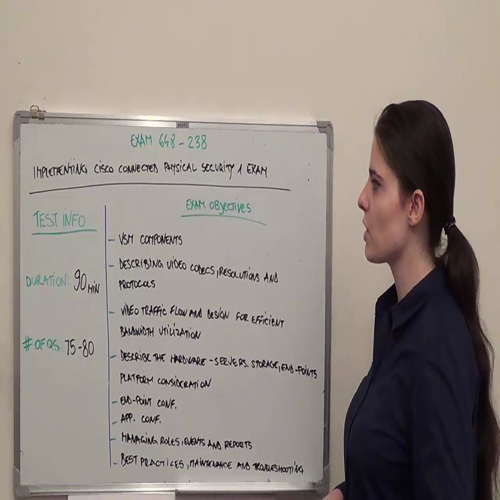 EXAM 648-238
IMPLEMENTING CISCO CONNECTED PHYSICAL SECURITY 1 EXAM
TEST INFO
DURATION: 90 MIN
# OF QS: 75-80
EXAM OBJECTIVES
- VSM COMPONENTS
- DESCRIBING VIDEO CODECS, RESOLUTIONS AND
PROTOCOLS
- VIDEO TRAFFIC FLOW AND DESIGN FOR EFFICIENT
BANDWIDTH UTILIZATION
- DESCRIBE THE HARDWARE - SERVERS, STORAGE, END-POINTS
PLATFORM CONSIDERATION
- END-POINT CONF.
- APP. CONF.
- MANAGING ROLES, EVENTS AND REPORTS
- BEST PRACTICES, MAINTENANCE AND TROUBLESHOOTING